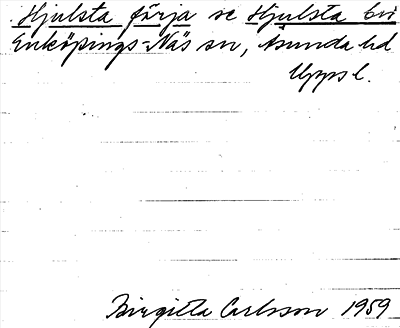 Hjulsta färja se Hjulsta bro
Enköpings-Näs sn, Åsunda hd
Uppsl.
Birgitta Carlsson 1959